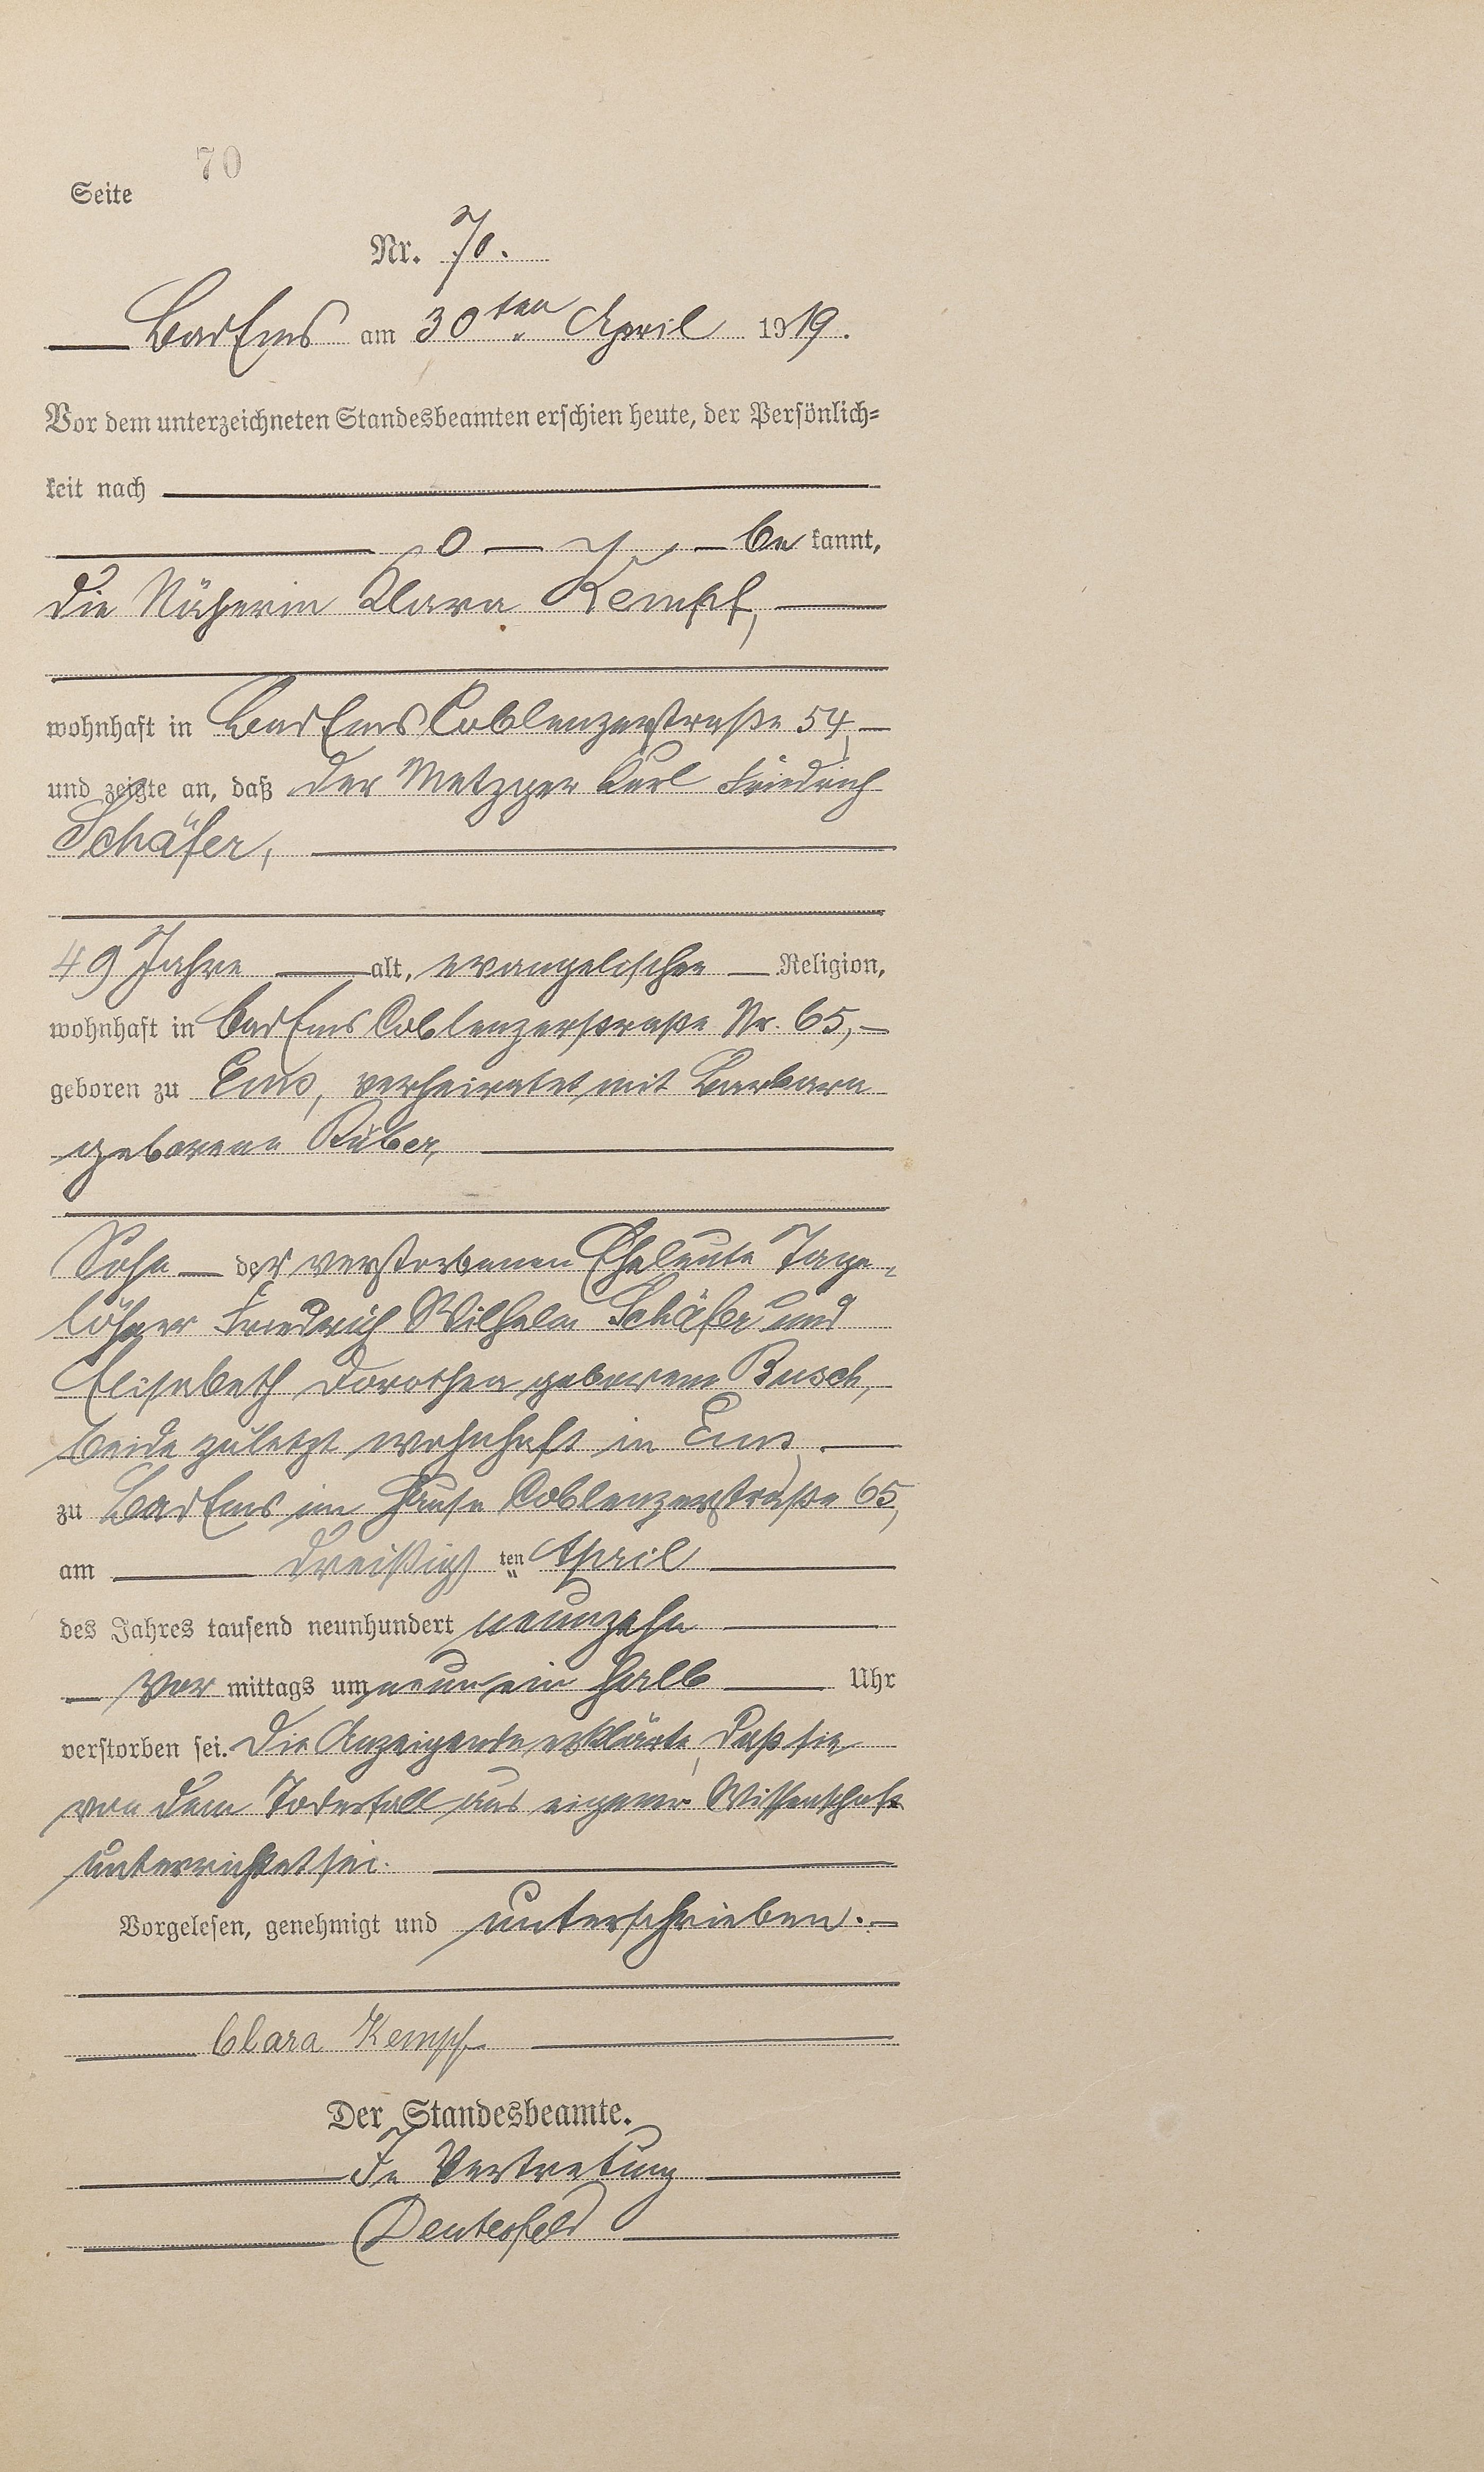 70
Seite
Nr. 70.
Bad Ems am 30ten April 1919.
Vor dem unterzeichneten Standesbeamten erschien heute, der Persönlich-
keit nach
be kannt,
die Näherin Klara Kempf,
wohnhaft in Bad Ems Coblenzerstraße 54,
und zeigte an, daß der Metzger Karl Friedrich
Schäfer,
49 Jahre alt, evangelischer Religion,
wohnhaft in Bad Ems Coblenzerstraße Nr. 65,
geboren zu Ems, verheiratet mit Barbara
geborene Rüber,
Sohn der verstorbenen Eheleute Tage-
löhner Friedrich Wilhelm Schäfer und
Elisabeth Dorothea geborene Busch,
beide zuletzt wohnhaft in Ems,
zu Bad Ems im Hause Coblenzerstraße 65,
am dreißig ten April
des Jahres tausend neunhundert neunzehn
Vor mittags um neun ein halb Uhr
verstorben sei. Die Anzeigende erklärte, daß sie
von dem Todesfall aus eigener Wissenschaft
unterrichtet sei.
Vorgelesen, genehmigt und unterschrieben.
Clara Kempf
Der Standesbeamte.
In Vertretung